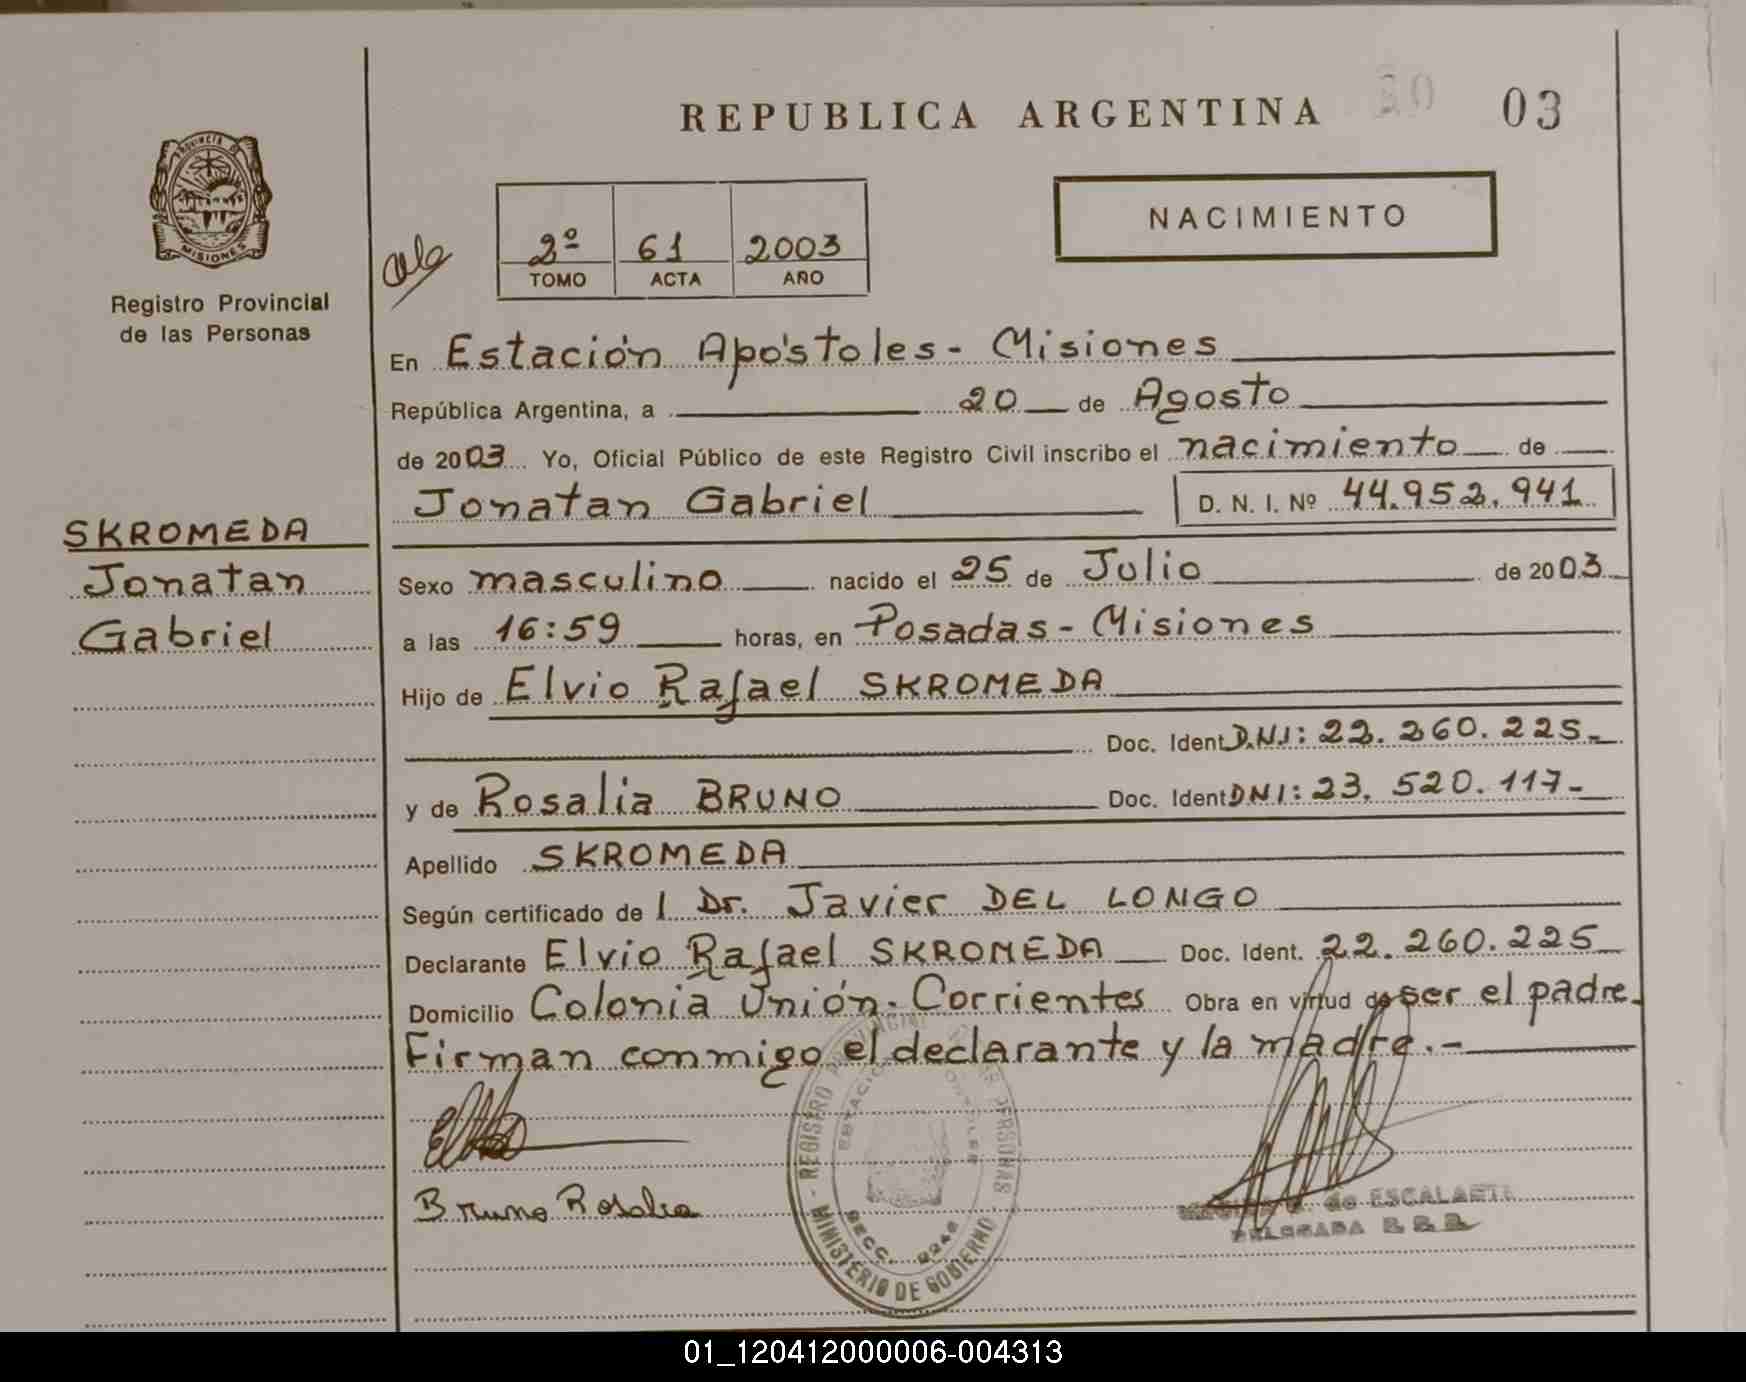 REPUBLICA ARGENTINA
03
PROVINCIA DE
MISIONES
Registro Provincial
de las Personas
2º 61 2003
TOMO ACTA AÑO
NACIMIENTO
En Estación Apóstoles - Misiones
República Argentina, a 20 de Agosto
de 2003 Yo, Oficial Público de este Registro Civil inscribo el nacimiento de
Jonatan Gabriel D. N. I. Nº 44.952.941
SKROMEDA
Jonatan
Gabriel
Sexo masculino nacido el 25 de Julio de 2003
a las 16:59 horas, en Posadas - Misiones
Hijo de Elvio Rafael SKROMEDA
Doc. Ident D.N.I: 22.260.225.-
y de Rosalia BRUNO Doc. Ident DNI: 23.520.117-
Apellido SKROMEDA
Según certificado de l Dr. Javier DEL LONGO
Declarante Elvio Rafael SKROMEDA Doc. Ident. 22.260.225
Domicilio Colonia Unión - Corrientes Obra en virtud de ser el padre.
Firman conmigo el declarante y la madre.-
Bruno Rosalia
REGISTRO PROVINCIAL DE LAS PERSONAS
MINISTERIO DE GOBIERNO
SECC.
de ESCALANTE
DELEGADA
01_120412000006-004313